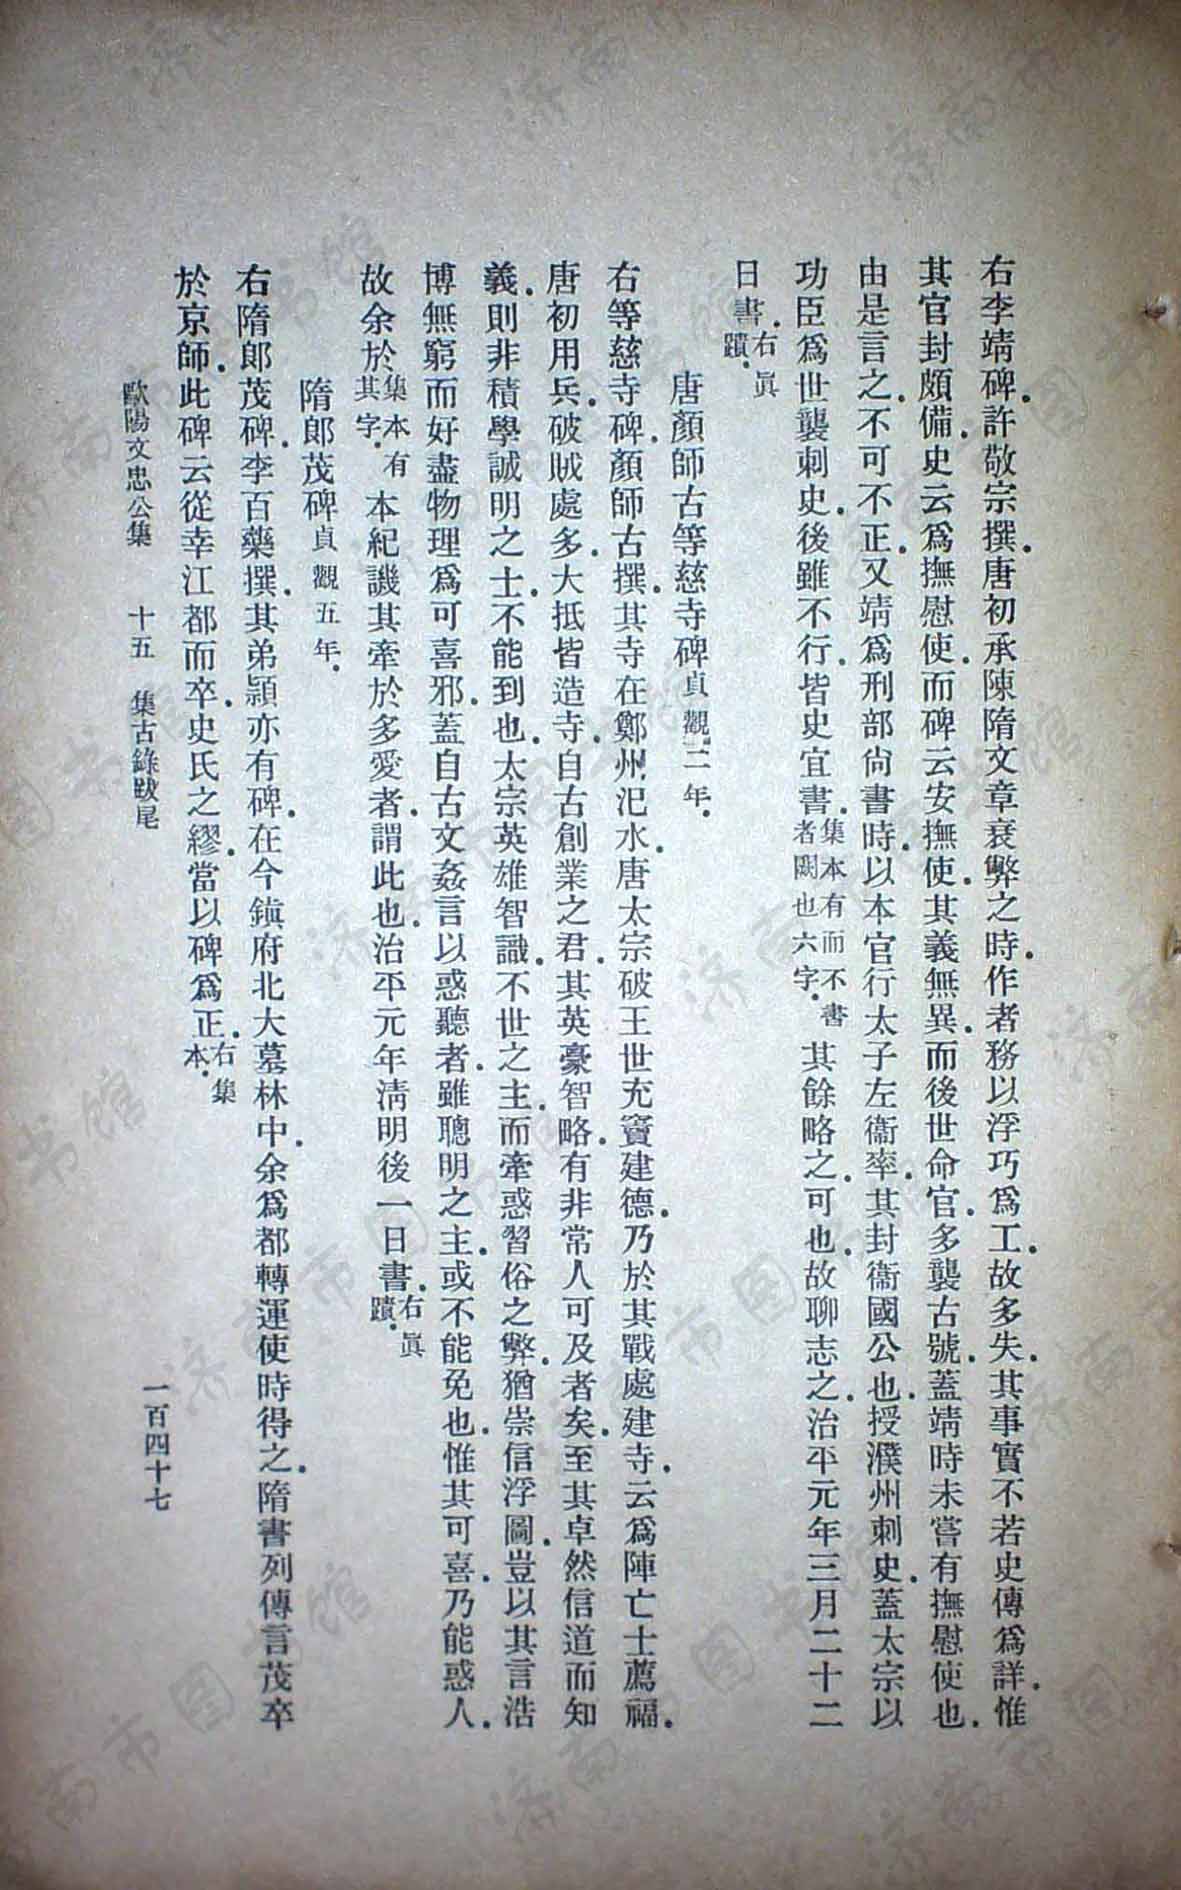 右李靖碑．許敬宗撰．唐初承陳隋文章衰弊之時．作者務以浮巧爲工．故多失．其事實不若史傳爲詳．惟
其官封頗備．史云爲撫慰使．而碑云安撫使．其義無異．而後世命官．多襲古號．蓋靖時未嘗有撫慰使也．
由是言之．不可不正．又靖爲刑部尙書時．以本官行太子左衞率．其封衞國公也．授濮州刺史．蓋太宗以
功臣爲世襲刺史．後雖不行．皆史宜書．集本有而不書者闕也六字．其餘略之．可也．故聊志之．治平元年三月二十二
日書．右眞蹟．
唐顏師古等慈寺碑貞觀二年．
右等慈寺碑．顏師古撰．其寺在鄭州汜水．唐太宗破王世充竇建德．乃於其戰處建寺．云爲陣亡士薦福．
唐初用兵．破賊處多．大抵皆造寺．自古創業之君．其英豪智略．有非常人可及者矣．至其卓然信道而知
義．則非積學誠明之士．不能到也．太宗英雄智識．不世之主．而牽惑習俗之弊．猶崇信浮圖．豈以其言浩
博無窮而好盡物理爲可喜邪．蓋自古文姦言以惑聽者．雖聰明之主．或不能免也．惟其可喜．乃能惑人．
故余於集本有其字．本紀譏其牽於多愛者．謂此也．治平元年淸明後一日書．右眞蹟．
隋郎茂碑貞觀五年．
右隋郎茂碑．李百藥撰．其弟頴亦有碑．在今鎮府北大墓林中．余爲都轉運使時得之．隋書列傳言茂卒
於京師．此碑云從幸江都而卒．史氏之繆．當以碑爲正．右集本．
歐陽文忠公集 十五 集古錄跋尾
一百四十七
济南市图书馆